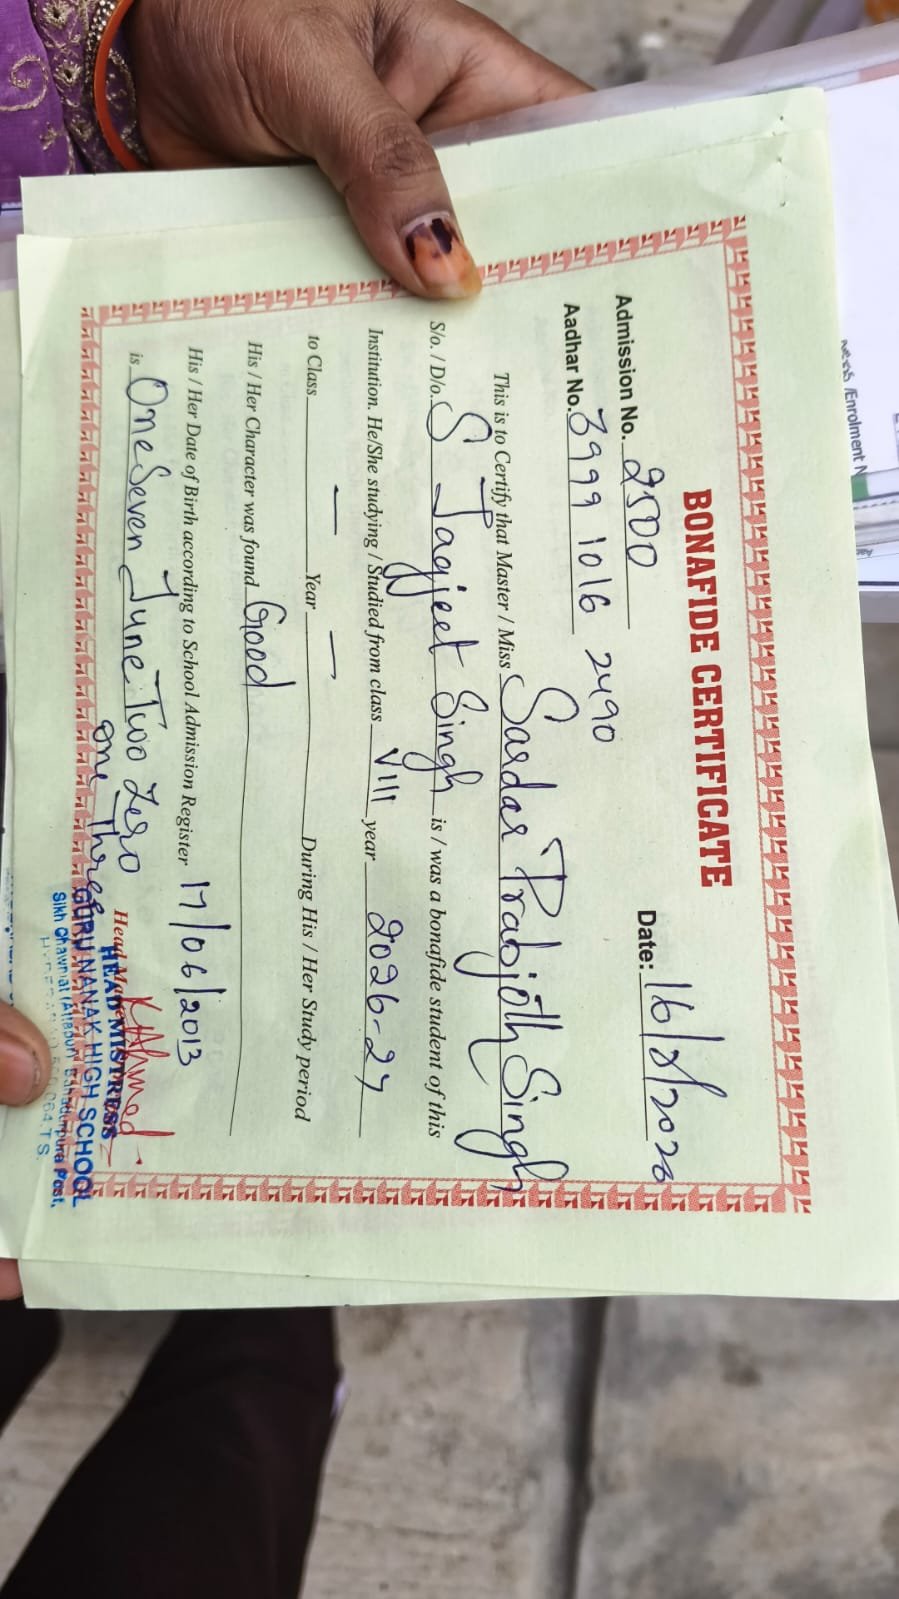 BONAFIDE CERTIFICATE
Admission No. 2500
Date: 16/
Aadhar No. 3999 1016 2490
This is to Certify that Master / Miss Sardar Prabjoth Singh
S/o. / D/o. S Jagjeet Singh is / was a bonafide student of this
Institution. He/She studying / Studied from class VIII year 2026-27
to Class — Year — During His / Her Study period
His / Her Character was found Good
His / Her Date of Birth according to School Admission Register 17/06/2013
is One Seven June Two Zero
One Three
K Ahmed
HEAD MISTRESS
GURU NANAK HIGH SCHOOL
Sikh Chawni,at (Attapur) Bahadurpura Post,
064.T.S.
/Enrolment N